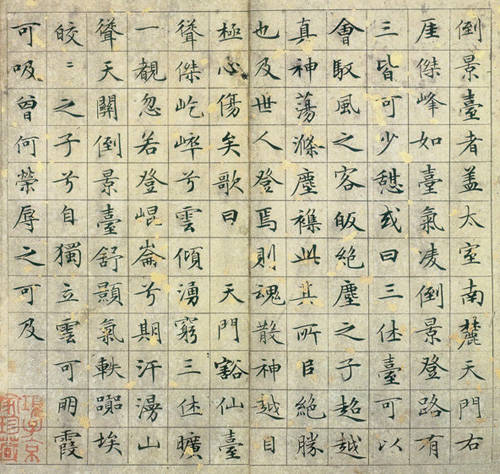 倒景臺者蓋太室南麓天門右
厓傑峰如臺氣凌倒景登路有
三皆可少憩或曰三休臺可以
會馭風之客皈絶塵之子超越
真神蕩滌塵襟此其所臣絶勝
也及世人登焉則魂散神越目
極心傷矣歌曰 天門豁仙臺
聳傑屹崒兮雲傾湧窮三休曠
一覩忽若登崐崙兮期汗漫山
聳天關倒景臺舒顥氣軼囂埃
皎〻之子兮自獨立雲可朋霞
可吸曾何榮辱之可及
項子京
家珍藏